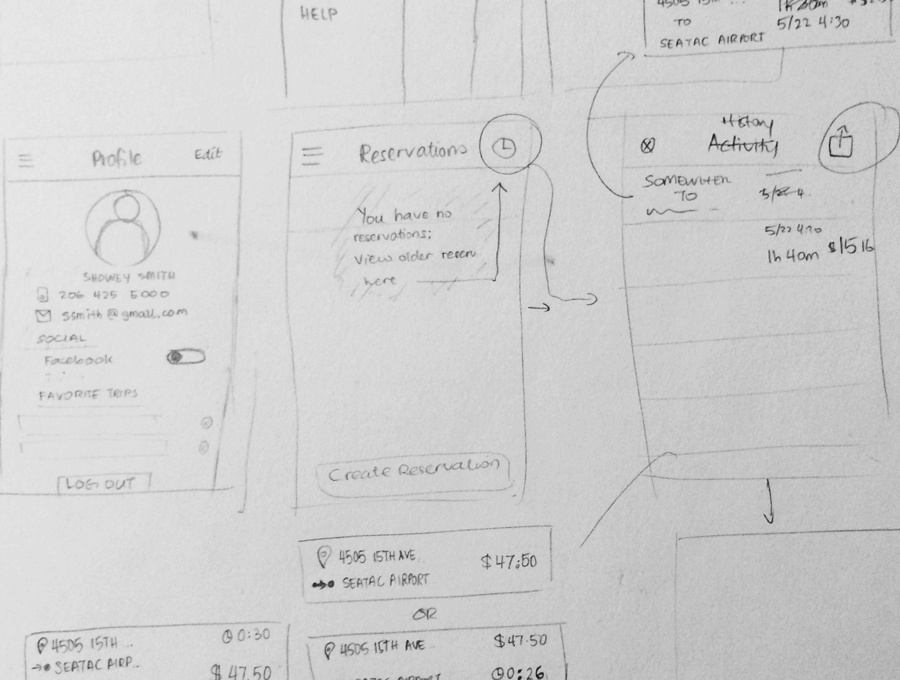 HELP
4505 15TH ...
TO
5/22 4:30
SEATAC AIRPORT
Profile
Edit
SHOWEY SMITH
206 425 5000
ssmith@gmail.com
SOCIAL
Facebook
FAVORITE TRIPS
LOG OUT
Reservations
You have no
reservations:
view older reserv
here
Create Reservation
History
Activity
TO
5/22 4:30
1h 40m $1516
4505 15TH AVE
$47.50
SEATAC AIRPORT
OR
4505 15TH ...
0:30
SEATAC AIRP..
$47.50
4505 15TH AVE
$47.50
SEATAC AIRPORT
0:26